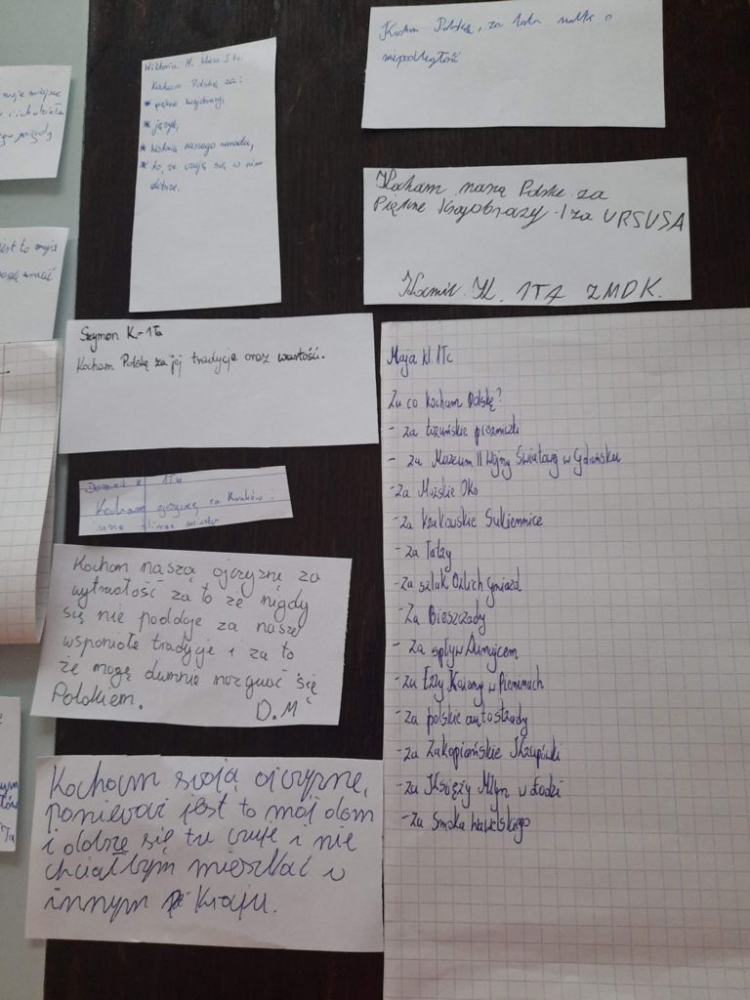 Wiktoria H. klasa I Ta
Kocham Polskę za:
* piękne krajobrazy,
* język,
* historię naszego narodu,
* to, że czuję się w nim
dobrze.
Kocham Polskę, za walkę o
niepodległość
Kocham naszą Polskę za
Piękne Krajobrazy I za URSUSA
Kamil. K. 1TA ZMDK.
Szymon K-1Ta
Kocham Polskę za jej tradycje oraz wartości.
1Tb
Kocham ojczyznę za Kraków i
inne miasta
Kocham naszą ojczyznę za
wytrwałość za to że nigdy
się nie poddaje za nasze
wsponiołe tradycje i za to
że mogę dumnie nazywać się
Polakiem.
D.M
Kocham swoją ojczyznę,
ponieważ jest to mój dom
i dobrze się tu czuję i nie
chciałbym mieszkać w
innym Kraju.
Maja kl. 1Tc
Za co kocham Polskę?
- za toruńskie pierniczki
- za Muzeum II Wojny Światowej w Gdańsku
- Za Morskie Oko
- za Krakowskie Sukiennice
- za Tatry
- Za szlak Orlich Gniazd
- Za Bieszczady
- za spływ Dunajcem
- za Trzy Korony w Pieninach
- za polskie autostrady
- za Zakopiańskie Krupówki
- za Księży Młyn w Łodzi
- za Smoka wawelskiego